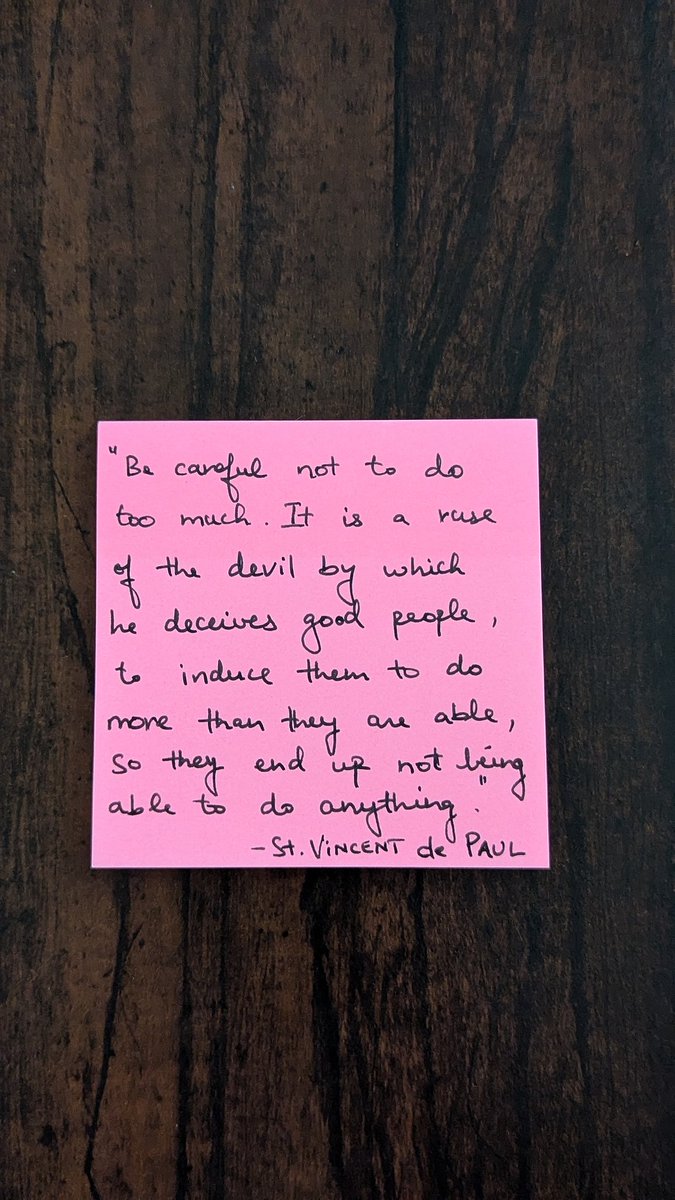 "Be careful not to do
too much. It is a ruse
of the devil by which
he deceives good people,
to induce them to do
more than they are able,
so they end up not being
able to do anything."
- St. VINCENT de PAUL